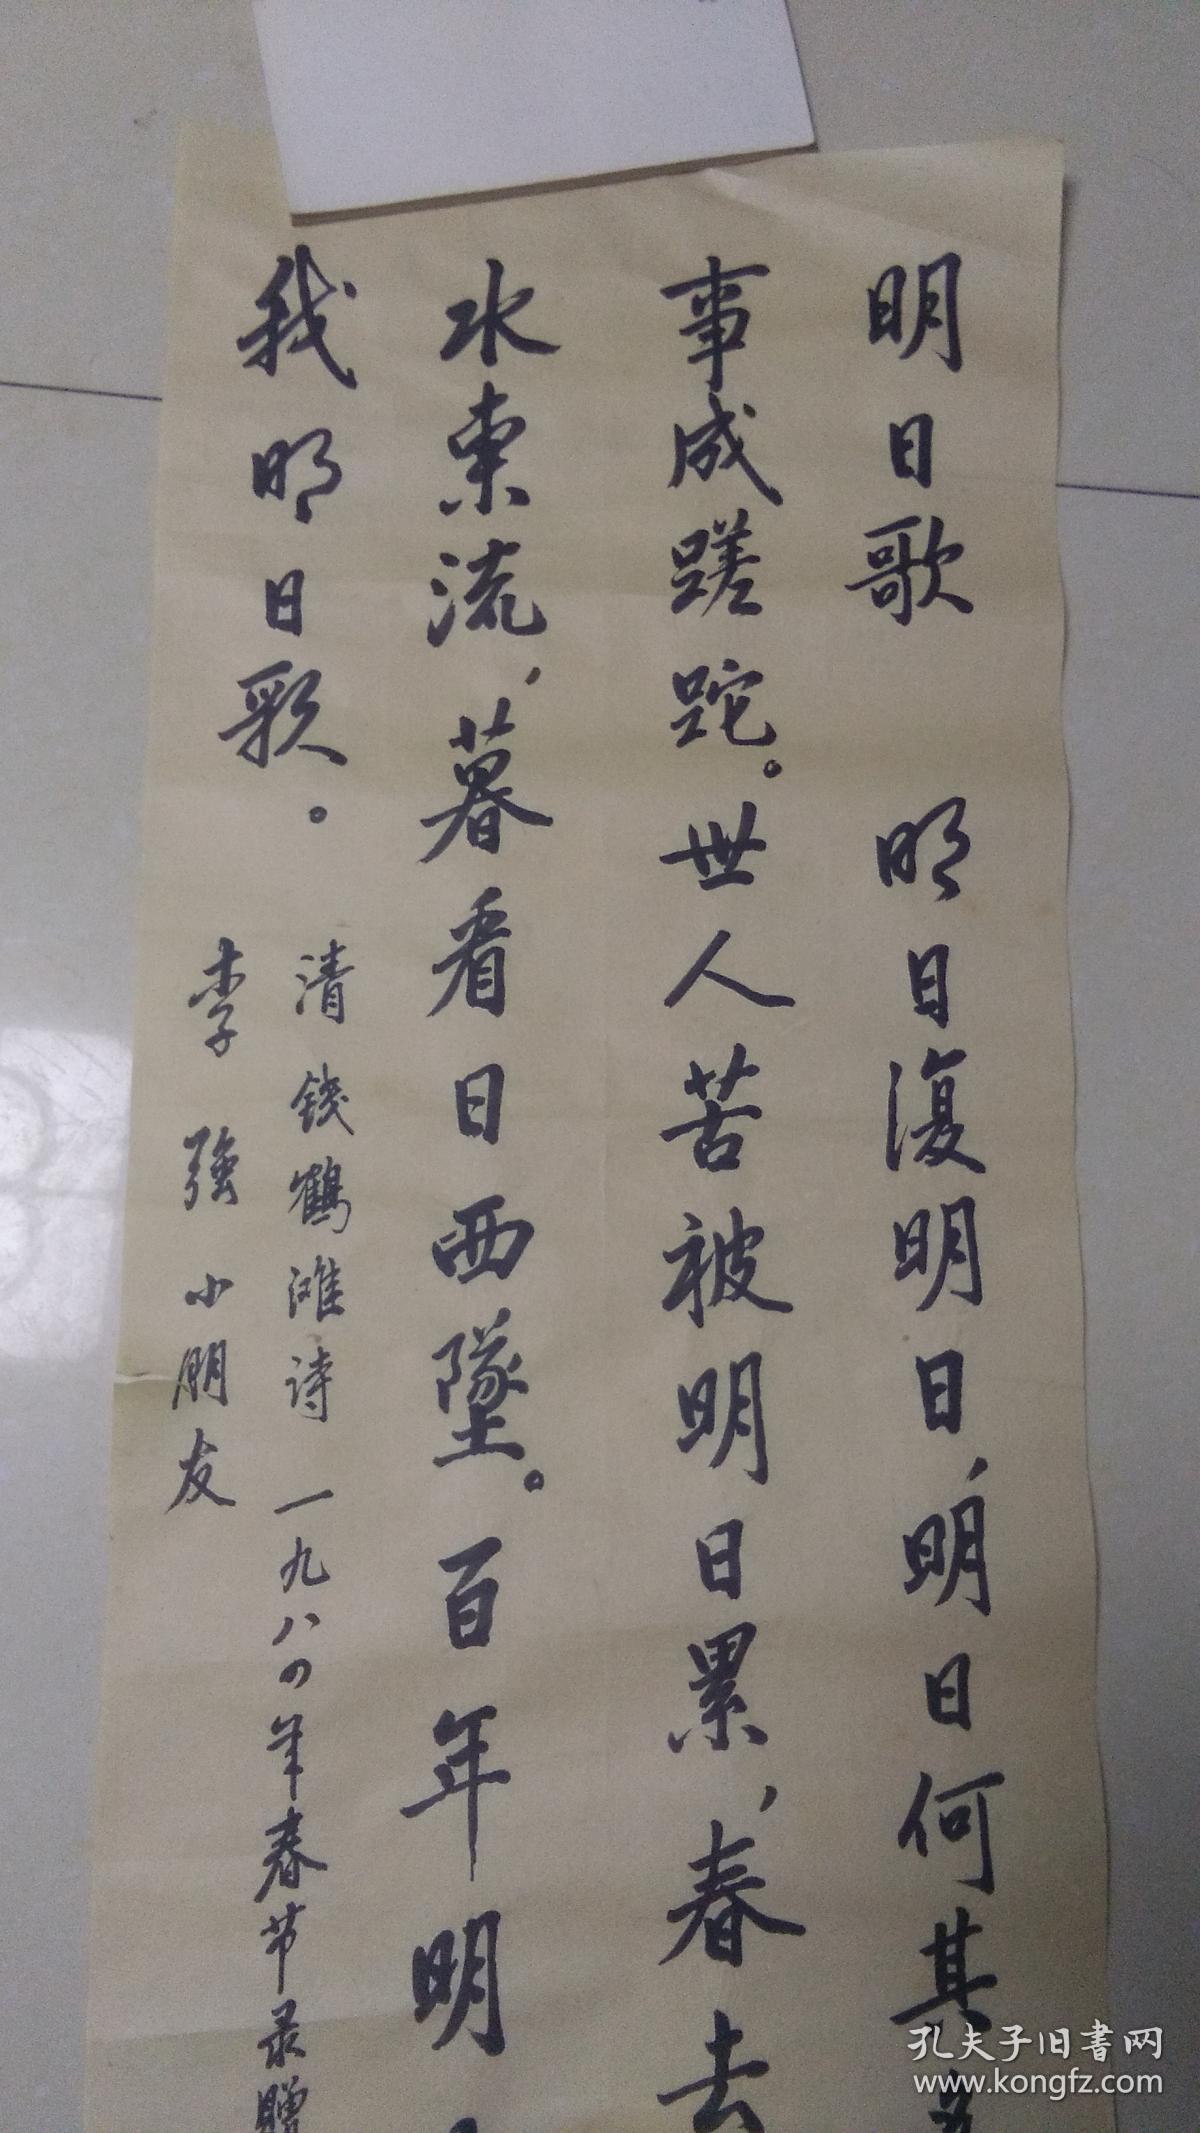 明日歌 明日復明日，明日何其
事成蹉跎。世人苦被明日累，春去
水東流，暮看日西墜。百年明
我明日歌。
清 钱鹤滩诗 一九八四年春节录赠
李強小朋友
孔夫子旧书网
www.kongfz.com